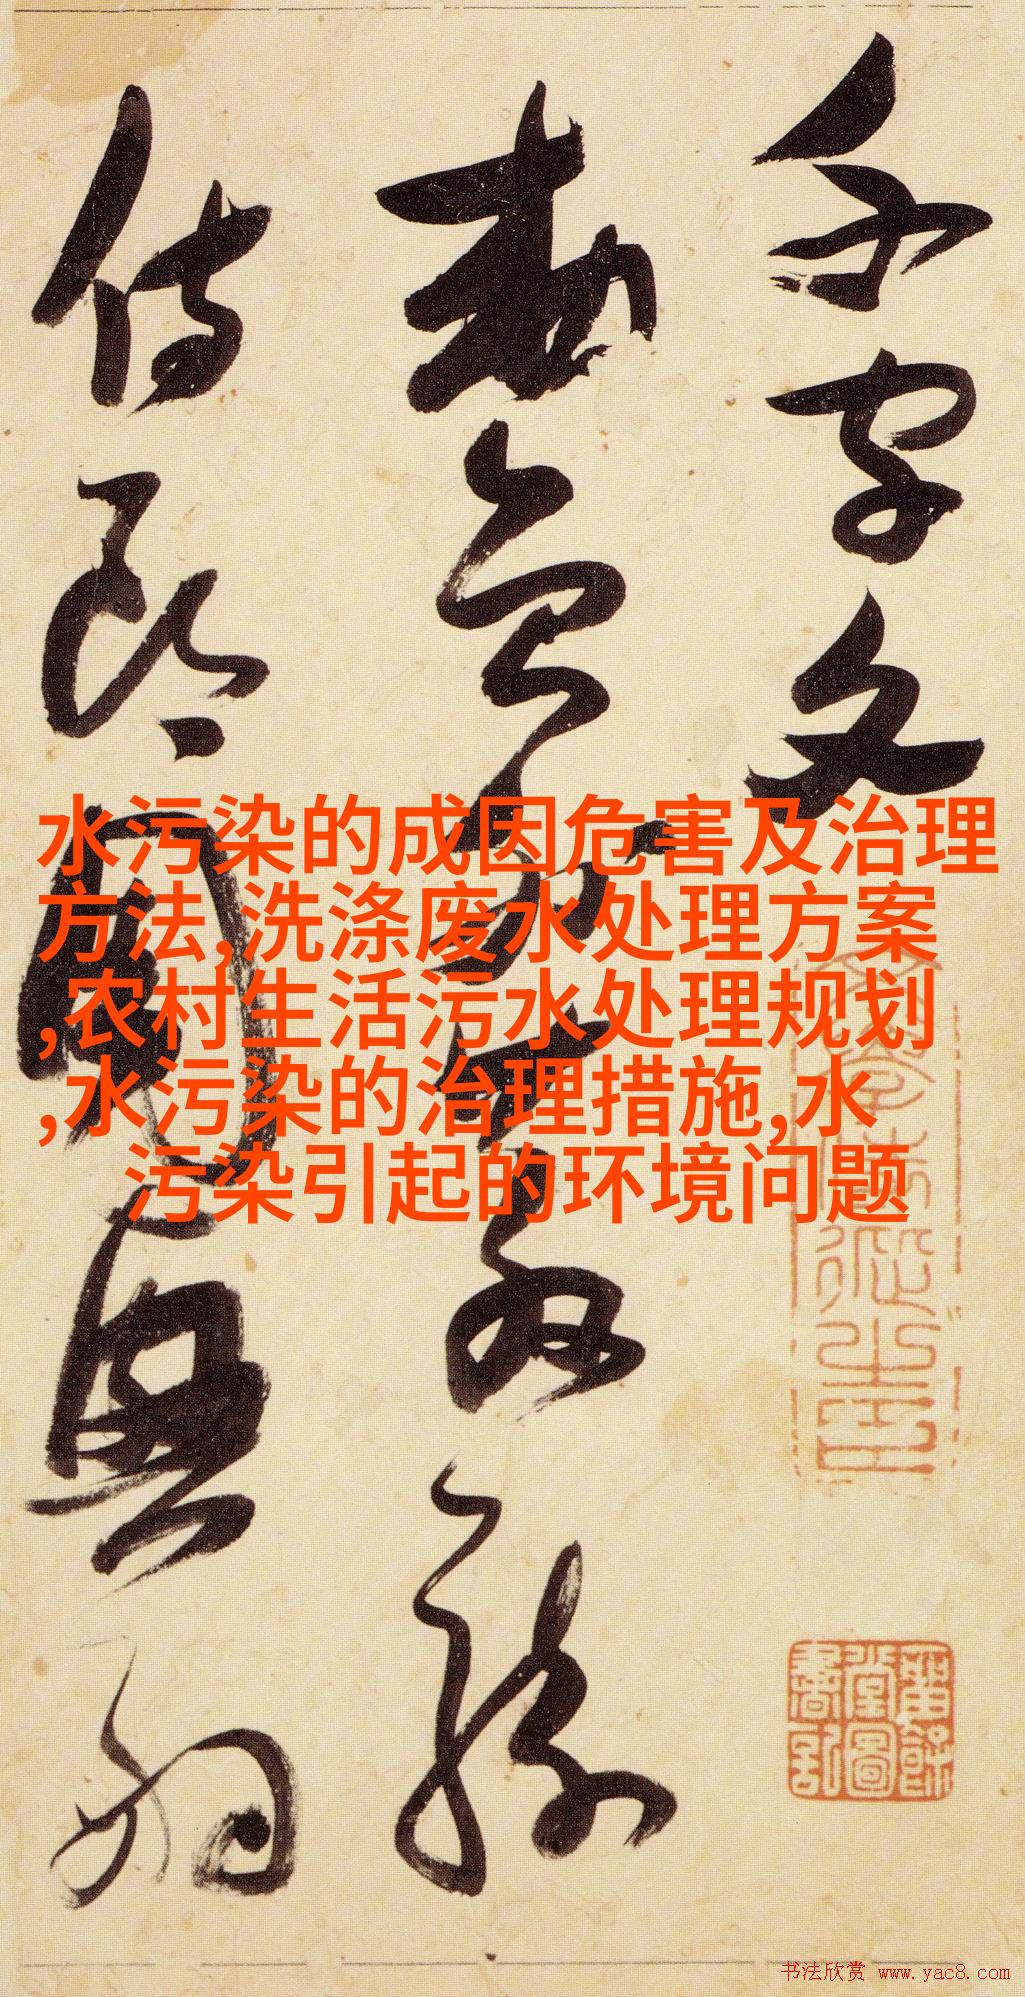 千字文
勅員外散騎
侍郎周興嗣
水污染的成因危害及治理
方法,洗涤废水处理方案
,农村生活污水处理规划
,水污染的治理措施,水
污染引起的环境问题
书法欣赏 www.yac8.com